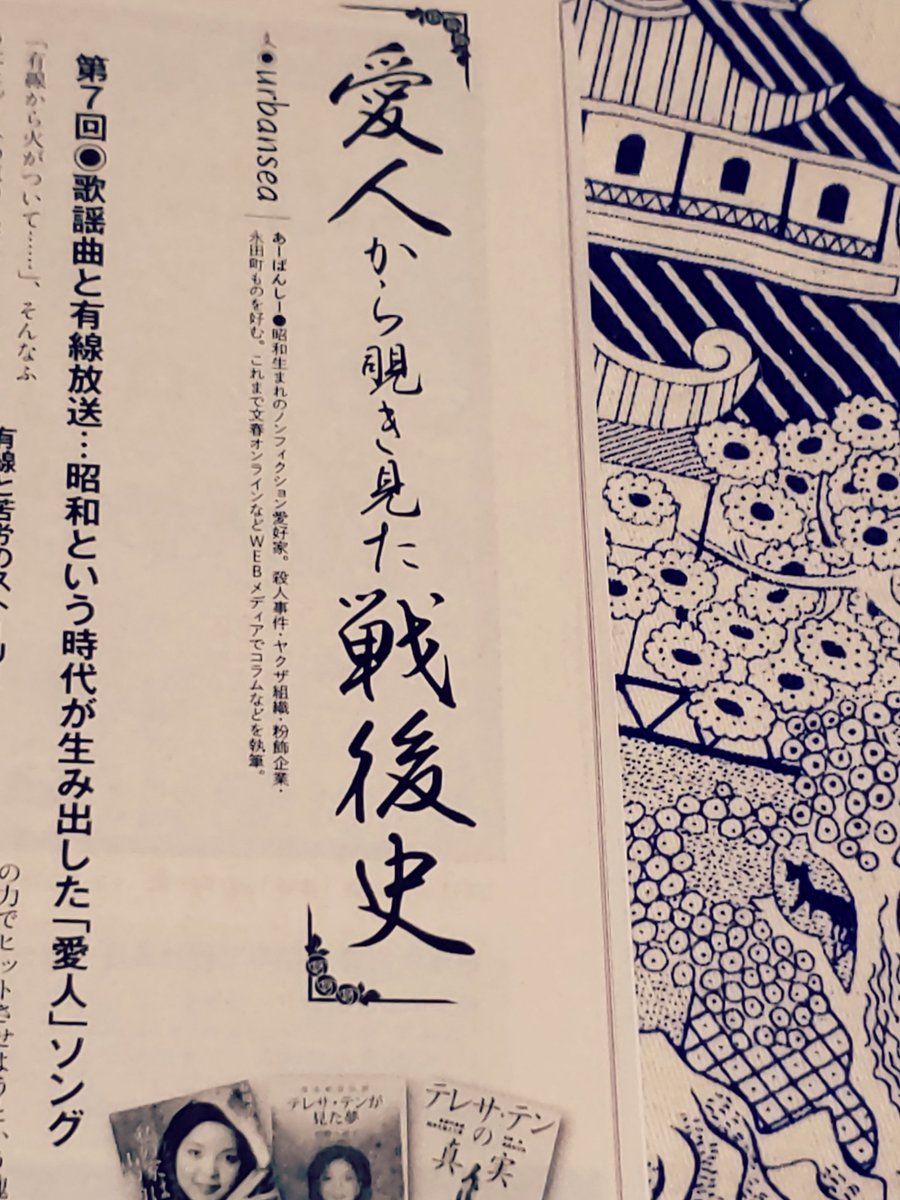 愛人から覗き見た戦後史
文●urbansea
あーばんしー●昭和生まれのノンフィクション愛好家。殺人事件・ヤクザ組織・粉飾企業・
永田町ものを好む。これまで文春オンラインなどWEBメディアでコラムなどを執筆。
第7回◉歌謡曲と有線放送…昭和という時代が生み出した「愛人」ソング
「有線から火がついて……」、そんなふ
有線と苦労のストーリ
の力でヒットさせように、
テレサ・テンの真実
テレサ・テンが
見た夢